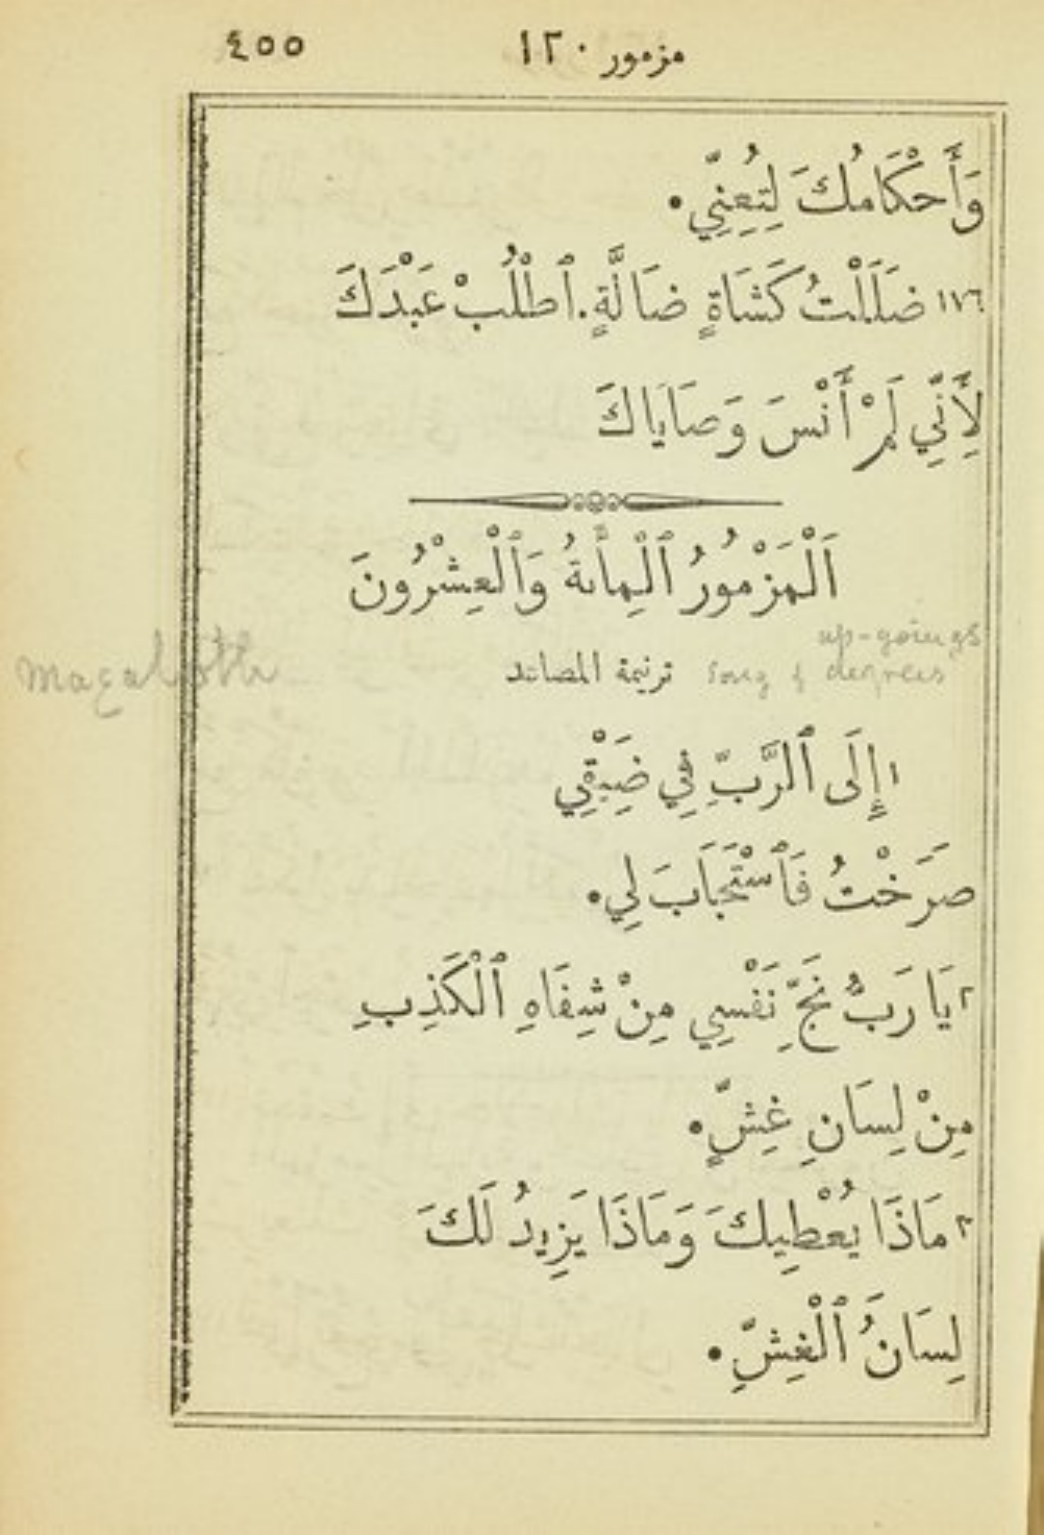 مزمور ١٢٠ ٤٥٥
وَأَحْكَامُكَ لِتُعِنِّي.
١٧٦ ضَلَلْتُ كَشَاةٍ ضَالَّةٍ. ٱطْلُبْ عَبْدَكَ
لِأَنِّي لَمْ أَنْسَ وَصَايَاكَ
اَلْمَزْمُورُ ٱلْمِأَىةُ وَٱلْعِشْرُونَ
up-goings
ترنيمة المصاعد Song of degrees
maҫaloth
١ إِلَى ٱلرَّبِّ فِي ضِيْقِي
صَرَخْتُ فَٱسْتَجَابَ لِي.
٢ يَا رَبُّ نَجِّ نَفْسِي مِنْ شِفَاهِ ٱلْكَذِبِ
مِنْ لِسَانِ غِشٍّ.
٣ مَاذَا يُعْطِيكَ وَمَاذَا يَزِيدُ لَكَ
لِسَانُ ٱلْغِشِّ.